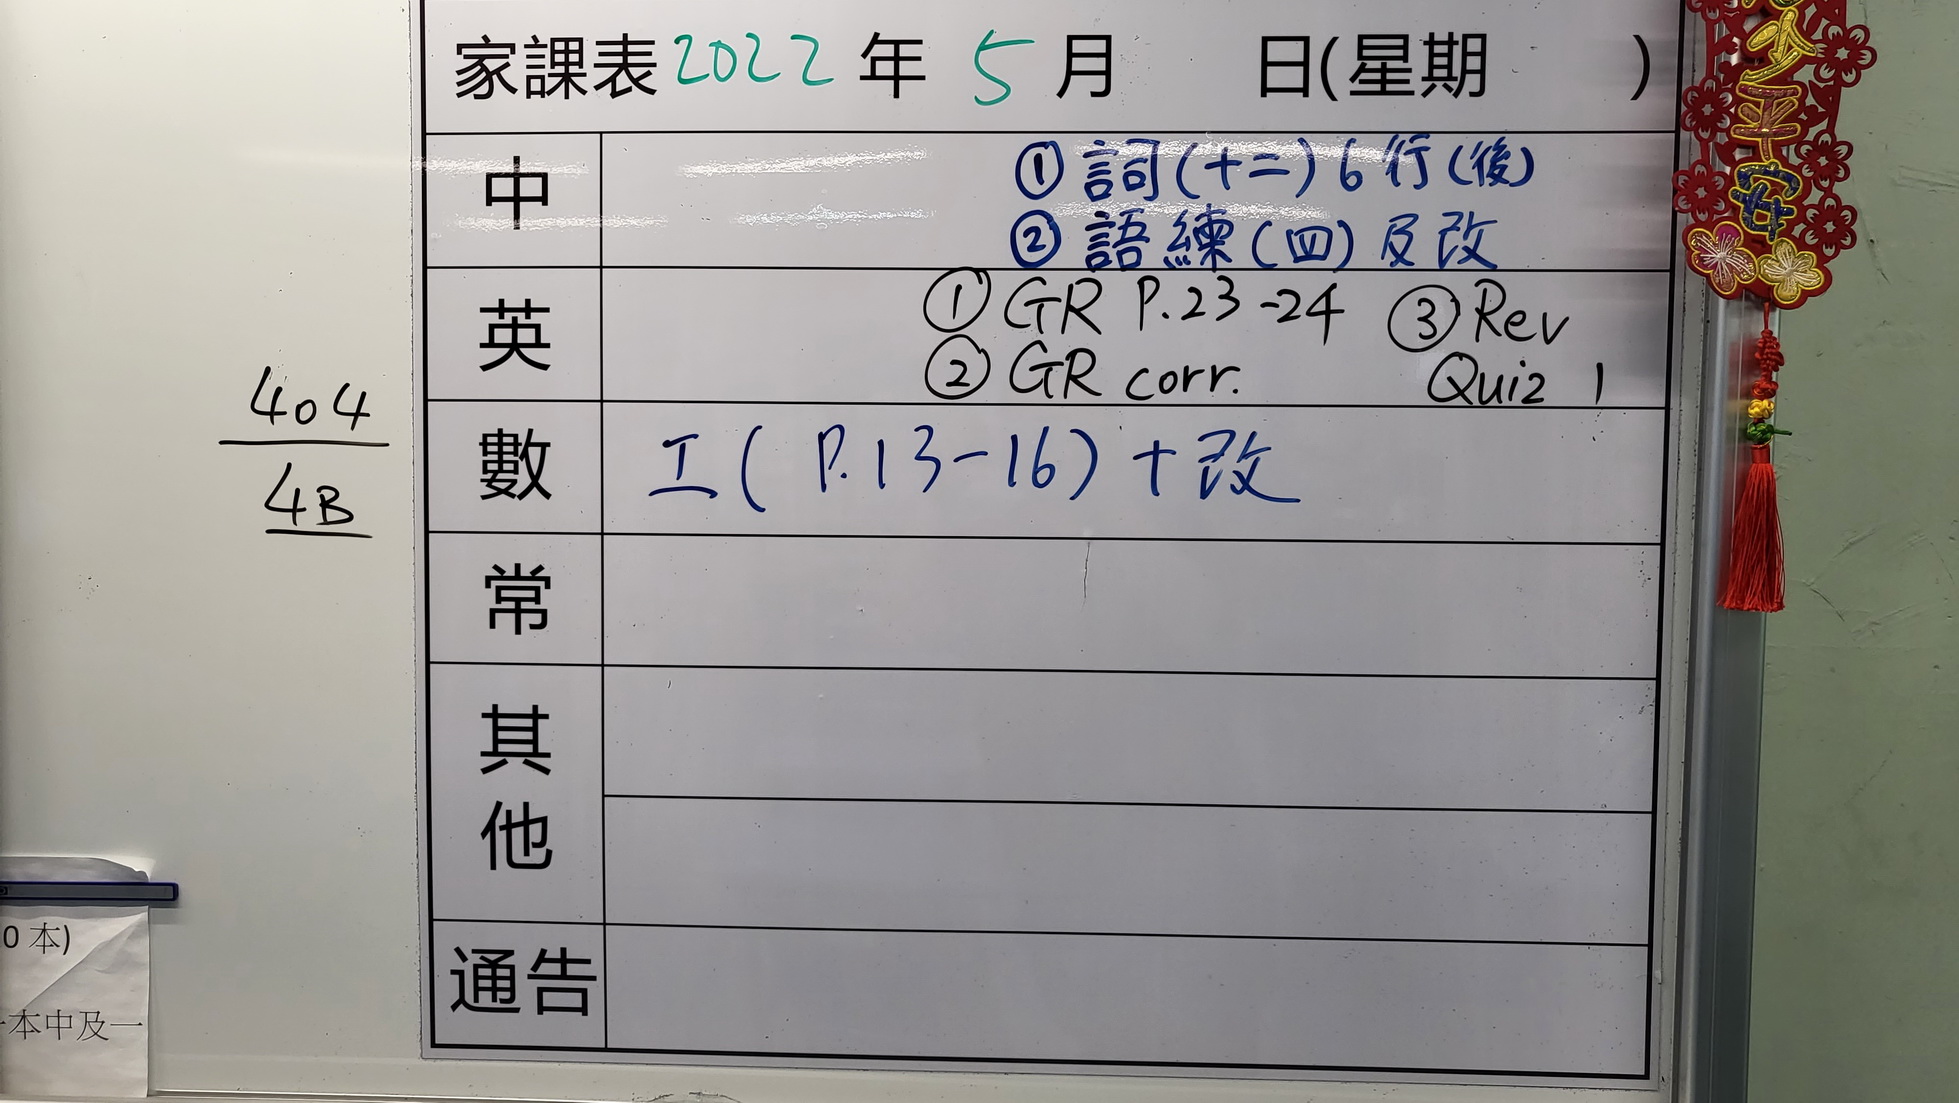 家課表2022年 5月 日(星期 )
中
①詞(十二)6行(後)
②語練(四)及改
英
①GR P.23-24 ③Rev
②GR corr. Quiz 1
數
工(P.13-16)+改
常
其
他
通告
404
4B
0本)
本中及一
平安